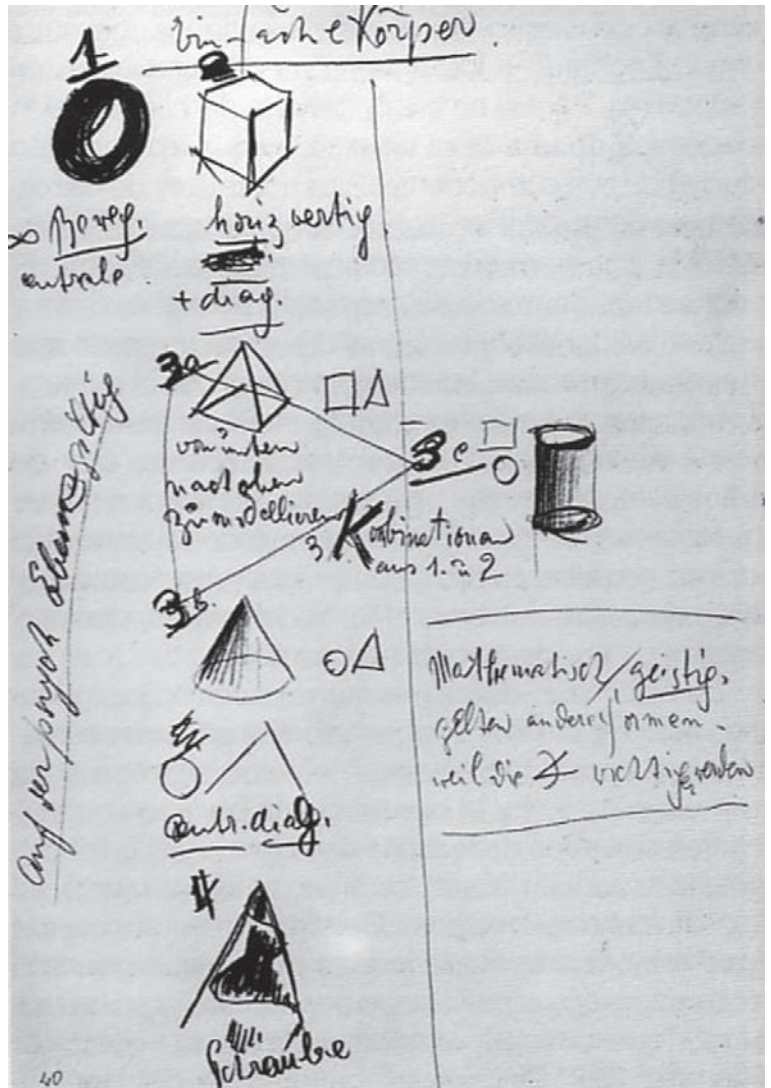 Einfache Körper.
1
2
∞ Beweg.
zentrale.
horiz vertig
+ diag.
3a
von unten
nach oben
zu modellieren
3c
3 Kombinationen
aus 1. u 2
3b.
Mathematisch/geistig.
gelten andere Formen.
weil die wichtig werden
centr. diag.
4
Schraube
auf der psych
40